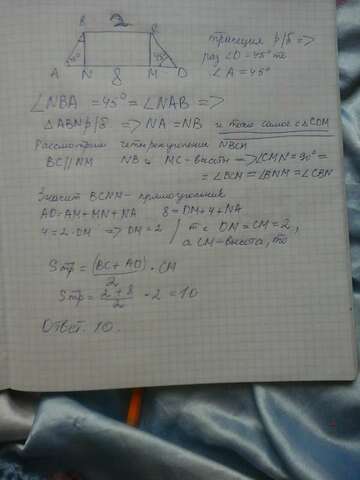 2
B C
45°
A N 8 M D
трапеция р/б =>
раз ∠D = 45° то
∠A = 45°
∠NBA = 45° = ∠NAB =>
△ABN р/б => NA = NB и тоже самое с △CDM
Рассмотрим четырехугольник NBCM
BC//NM NB и MC - высоты => ∠CMN = 90° =
= ∠BCM = ∠BNM = ∠CBN
Значит BCNM - прямоугольник
AD = AM + MN + NA 8 = DM + 4 + NA
4 = 2·DM => DM = 2 / т.к DM = CM = 2,
а CM - высота, то
Sтр = (BC + AD)/2 · CM
Sтр = (2 + 8)/2 · 2 = 10
Ответ. 10.